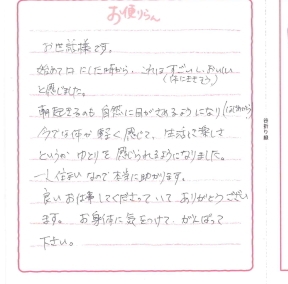 お便りらん
お世話様です。
始めて口にした時から、これはすごい、おいしい
(体にききそう)
と感じました。
朝起きるのも自然に目がさめるようになり(はじめから)
今では体が軽く感じて、生活に楽しさ
というか ゆとりを感じられるようになりました。
一人住まいなので本当に助かります。
良いお仕事してくださっていてありがとうござい
ます。 お身体に気をつけて がんばって
下さい。
谷折り線